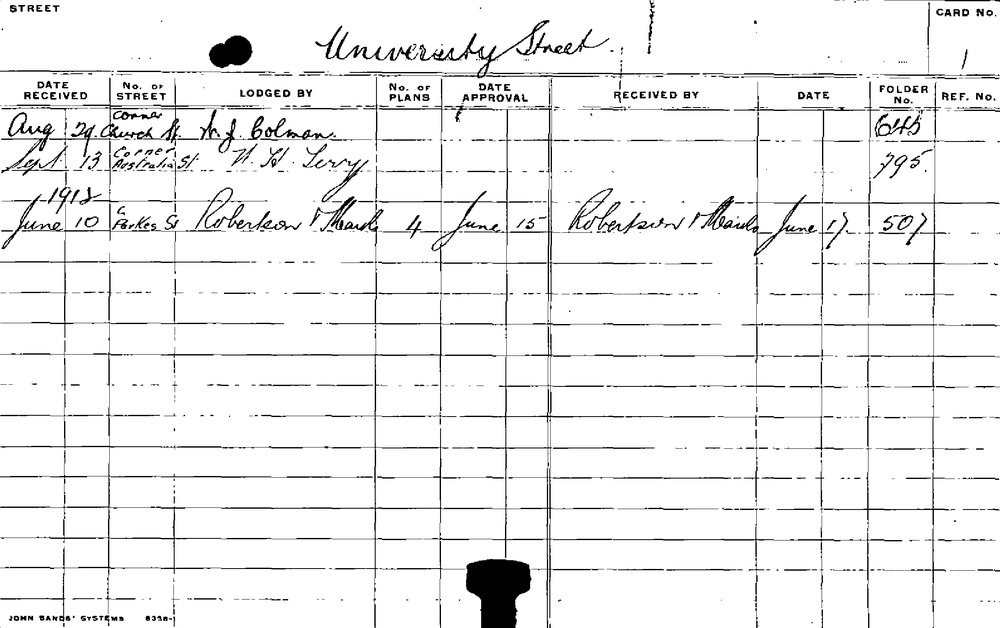 STREET
University Street
CARD No.
1
DATE RECEIVED
No. OF STREET
LODGED BY
No. OF PLANS
DATE APPROVAL
RECEIVED BY
DATE
FOLDER No.
REF. No.
Aug 29. Corner Church St. J. Colman. 645
Sept. 13 Corner Australia St H. H. Terry 795.
1912
June 10 Parkes St Robertson & Marks 4 June 15 Robertson & Marks June 17. 507
JOHN SANDS' SYSTEMS